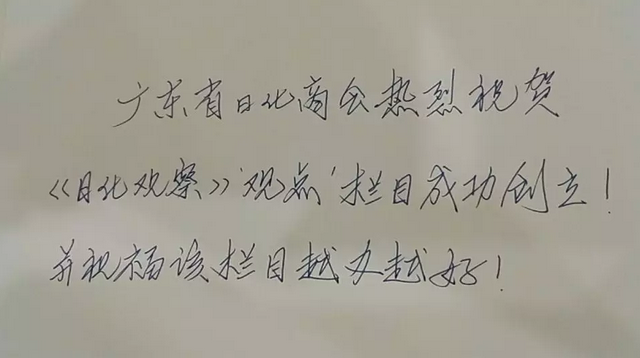 广东省日化商会热烈祝贺
《日化观察》'观点'栏目成功创立！
并祝福该栏目越办越好！